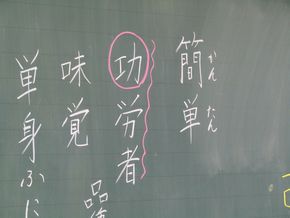 簡単
かんたん
功労者
味覚
品
単身ふに